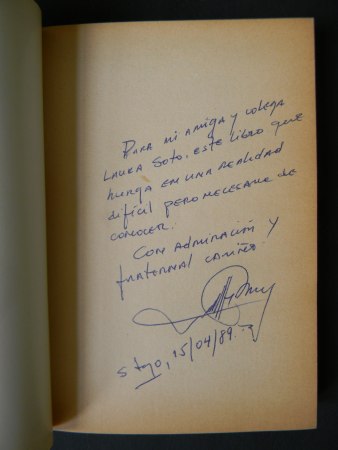 Para mi amiga y colega
Laura Soto, este libro que
hurga en una realidad
dificil pero necesaria de
conocer.
Con admiración y
fraternal cariño.
Stgo, 15/04/89.-